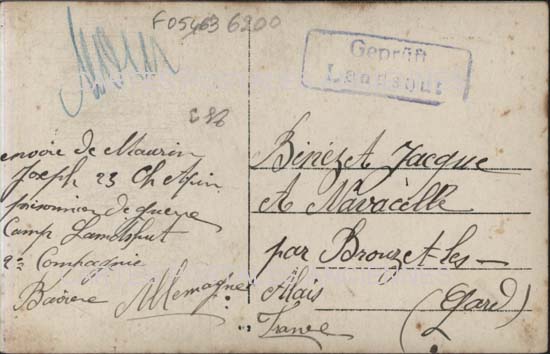 F05463 6200
Geprüft
Landshut
C 86
envoie de Maurin
Joseph 23 Ch Alpin
prisonnier de guerre
Camp Lamdshut
2e Compagnie
Bavière Allemagne
Bénézet Jacque
A Navacelle
par Brouzet-les-
Alais
(Gard)
France